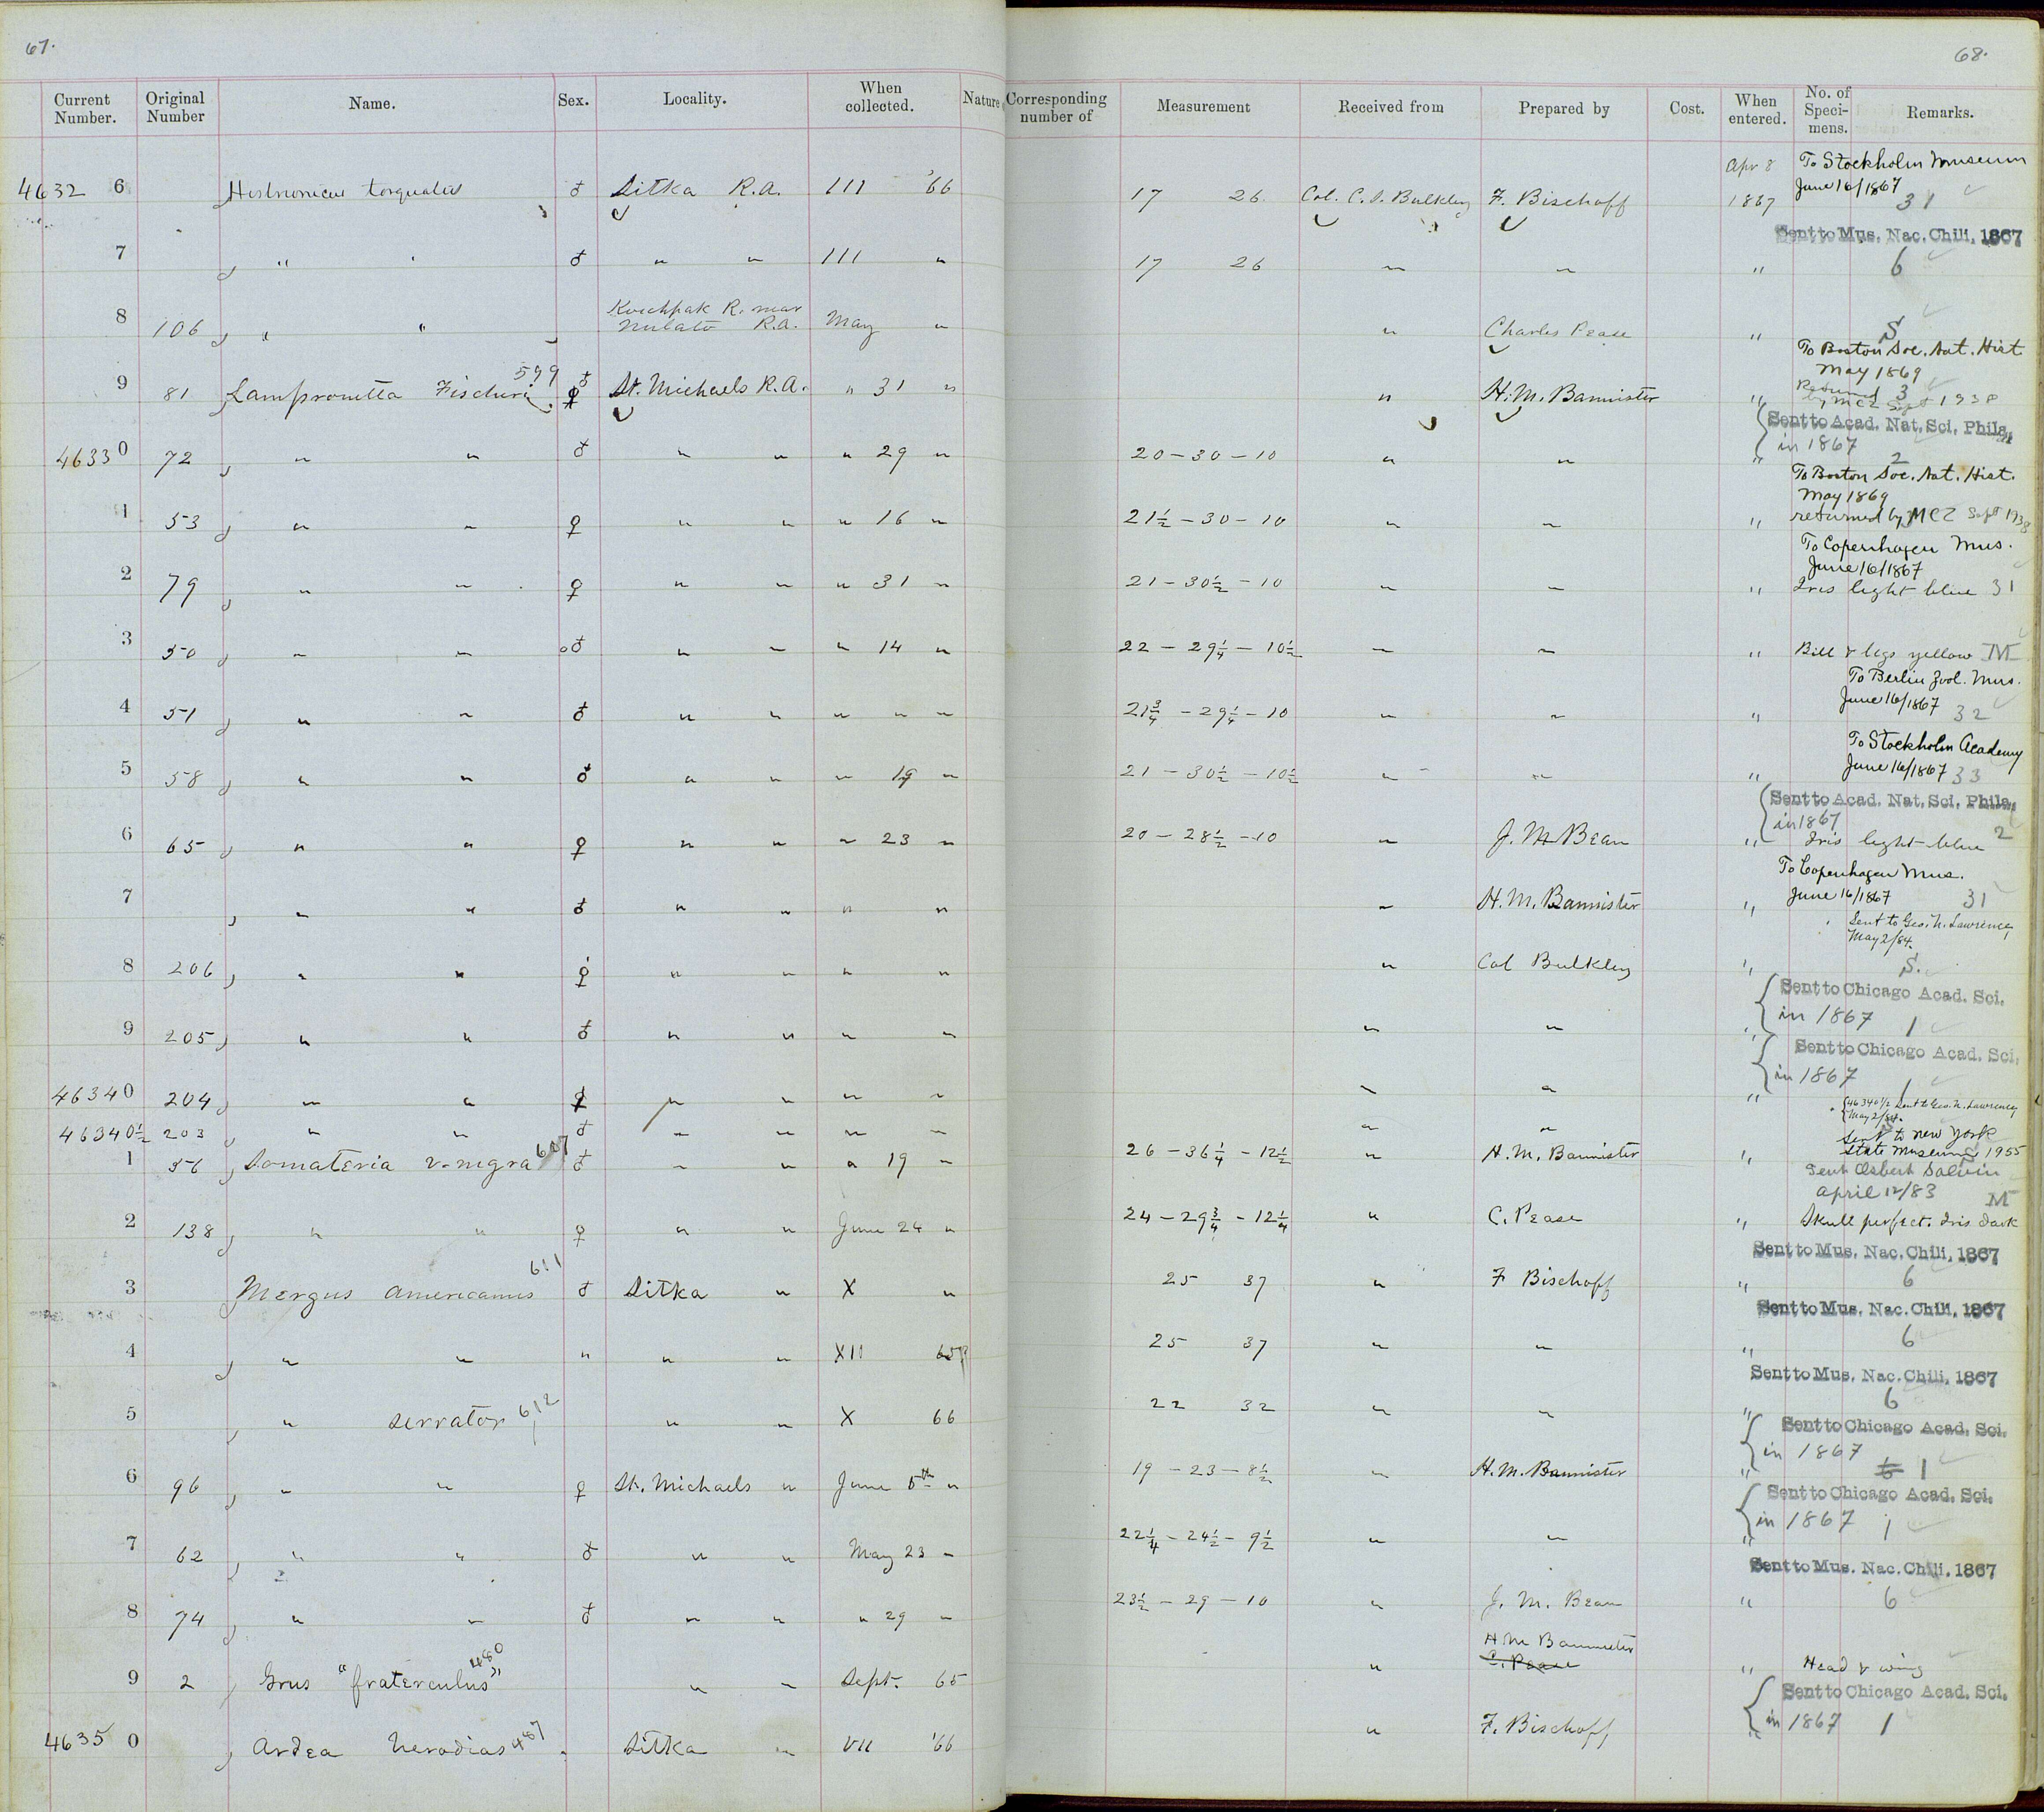 67.
68.
Current Number. Original Number Name. Sex. Locality. When collected. Nature Corresponding number of Measurement Received from Prepared by Cost. When entered. No. of Speci- mens. Remarks.
Apr 8 To Stockholm Museum
4632 6 Histrionicus torquatus ♂ Sitka R.A. III '66 17 26 Col. C. S. Bulkley F. Bischoff 1867 June 16/1867 31
Sent to Mus. Nac. Chili, 1867
7 " " ♂ " " III " 17 26 " " " 6
Kvichpak R. near
8 106 " " Nulato R.A. May " " Charles Pease " S
To Boston Soc. Nat. Hist.
May 1869
9 81 Lampronetta Fischeri 599 ♂ ♀ St. Michaels R.A. " 31 " " H. M. Bannister " Returned 3
by MCZ Sept 1938
Sent to Acad. Nat. Sci. Phila.
in 1867
46330 72 " " ♂ " " " 29 " 20 - 30 - 10 " " " 2
To Boston Soc. Nat. Hist.
May 1869
1 53 " " ♀ " " " 16 " 21½ - 30 - 10 " " " returned by MCZ Sept 1938
To Copenhagen Mus.
June 16/1867
2 79 " " ♀ " " " 31 " 21 - 30½ - 10 " " " Iris light blue 31
3 50 " " ♂ " " " 14 " 22 - 29¼ - 10½ " " " Bill & legs yellow M
To Berlin Zool. Mus.
4 51 " " ♂ " " " " " 21¾ - 29¼ - 10 " " " June 16/1867 32
To Stockholm Academy
5 58 " " ♂ " " " 19 " 21 - 30½ - 10½ " " " June 16/1867 33
Sent to Acad. Nat. Sci. Phila.
in 1867
6 65 " " ♀ " " " 23 " 20 - 28½ - 10 " J. M. Bean " Iris light blue 2
To Copenhagen Mus.
7 " " ♂ " " " " " H. M. Bannister " June 16/1867 31
Sent to Geo. N. Lawrence,
May 2/84.
8 206 " " ♀ " " " " " Col Bulkley " S.
Sent to Chicago Acad. Sci.
in 1867 1
9 205 " " ♂ " " " " " " "
Sent to Chicago Acad. Sci.
in 1867 1
46340 204 " " ♀ " " " " " " "
46340½ Sent to Geo. N. Lawrence,
May 2/84.
46340½ 203 " " ♂ " " " " " "
Sent to New York
1 56 Somateria v-nigra 607 ♂ " " " 19 " 26 - 36¼ - 12½ " H. M. Bannister " State Museum 1955
Sent Osbert Salvin
April 12/83 M
2 138 " " ♀ " " June 24 " 24 - 29¾ - 12¼ " C. Pease " Skull perfect. Iris dark
Sent to Mus. Nac. Chili, 1867
3 Mergus americanus 611 ♂ Sitka " X " 25 37 " F Bischoff " 6
Sent to Mus. Nac. Chili, 1867
4 " " " " " XII 65? 25 37 " " " 6
Sent to Mus. Nac. Chili, 1867
5 " serrator 612 " " X 66 22 32 " " " 6
Sent to Chicago Acad. Sci.
in 1867
6 96 " " ♀ St. Michaels " June 5th " 19 - 23 - 8½ " H. M. Bannister " 6 1
Sent to Chicago Acad. Sci.
in 1867 1
7 62 " " ♂ " " May 23 " 22¼ - 24½ - 9½ " " "
Sent to Mus. Nac. Chili, 1867
8 74 " " ♂ " " " 29 " 23½ - 29 - 10 " J. M. Bean " 6
H M Bannister
9 2 Grus "fraterculus" 480 " " Sept. 65 " C. Pease " Head & wing
Sent to Chicago Acad. Sci.
in 1867 1
4635 0 Ardea herodias 487 Sitka " VII '66 " F. Bischoff "